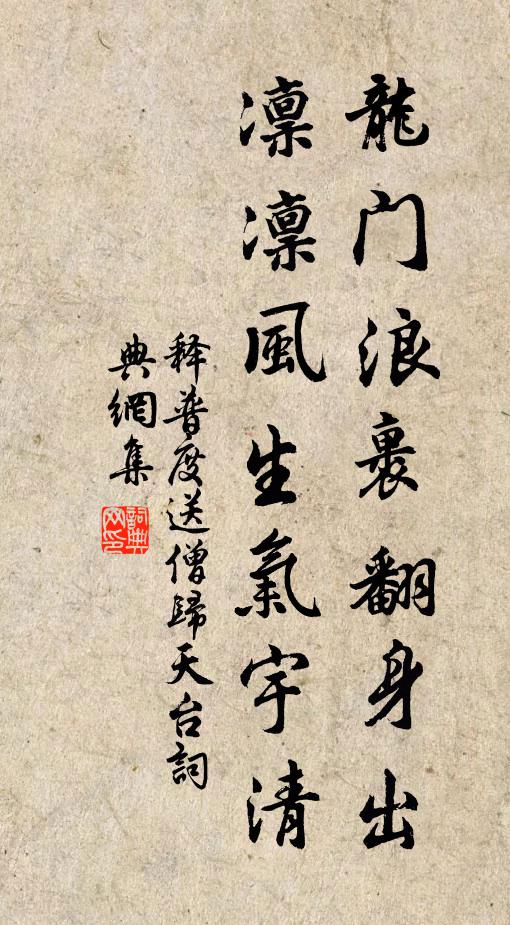 龍門浪裹翻身出
凛凛風生氣宇清
释普度送僧歸天台詞
典網集
詞典網印